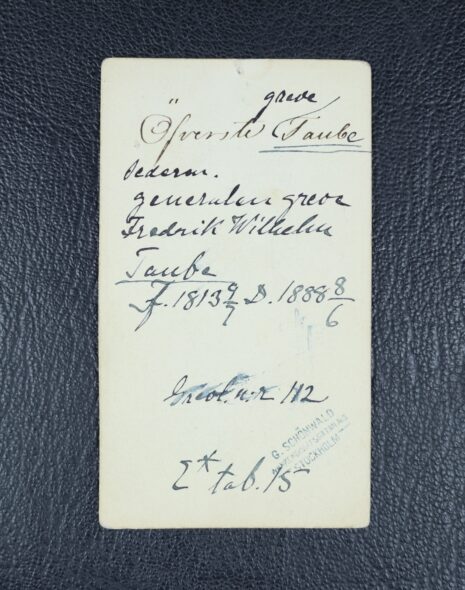 greve
Öfverste Taube
sederm.
generalen greve
Fredrik Wilhelm
Taube
F. 1813 9/7 D. 1888 8/6
Grevl. n:r 112
E* tab. 15
G. SCHÖNWALD
STOCKHOLM